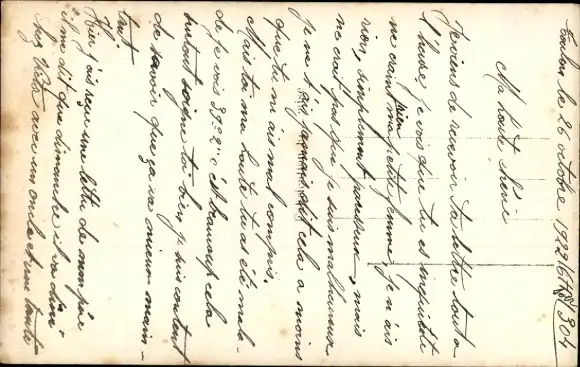 Toulon le 26 octobre 1922 (6H30) 304
Ma toute chérie
Je viens de recevoir ta lettre tout a
l'heure, je vois que tu es inquiète
ne crains rien ma petite femme, je n'ais
rien, simplement paresseux, mais
ne crait pas que je suis malheureux
je ne t'ais jamais dit cela a moins
que tu m'ais mal compris.
Mais toi ma toute tu as été mala-
de je vois 39°2 c'est beaucoup cela
surtout soigne toi bien, je suis content
de savoir que ça va mieux main-
tent.
Hier j'ais reçu une lettre de mon père
il me dit que dimanche il va diner
chez Victor avec un oncle et une tante